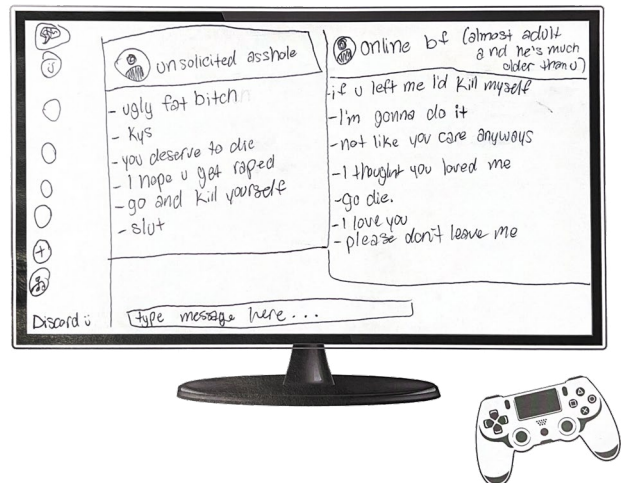 unsolicited asshole
- ugly fat bitch
- Kys
- you deserve to die
- I hope u get raped
- go and kill yourself
- slut
online bf (almost adult
and he's much
older than u)
-if u left me I'd kill myself
-I'm gonna do it
-not like you care anyways
-I thought you loved me
-go die.
-I love you
-please don't leave me
Discord
type message here...